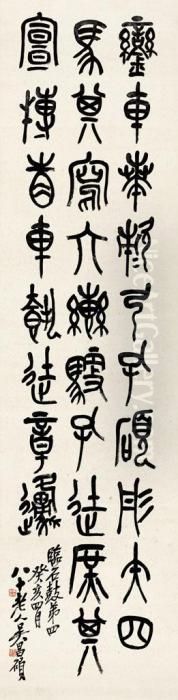 鑾車𠦪敕弓孔碩彤矢四
馬其寫六轡驁孔徒庶其
宣搏眚車徒章邍
臨石鼓第四
癸亥四月
八十老人吳昌碩
NiceArtGallery.com